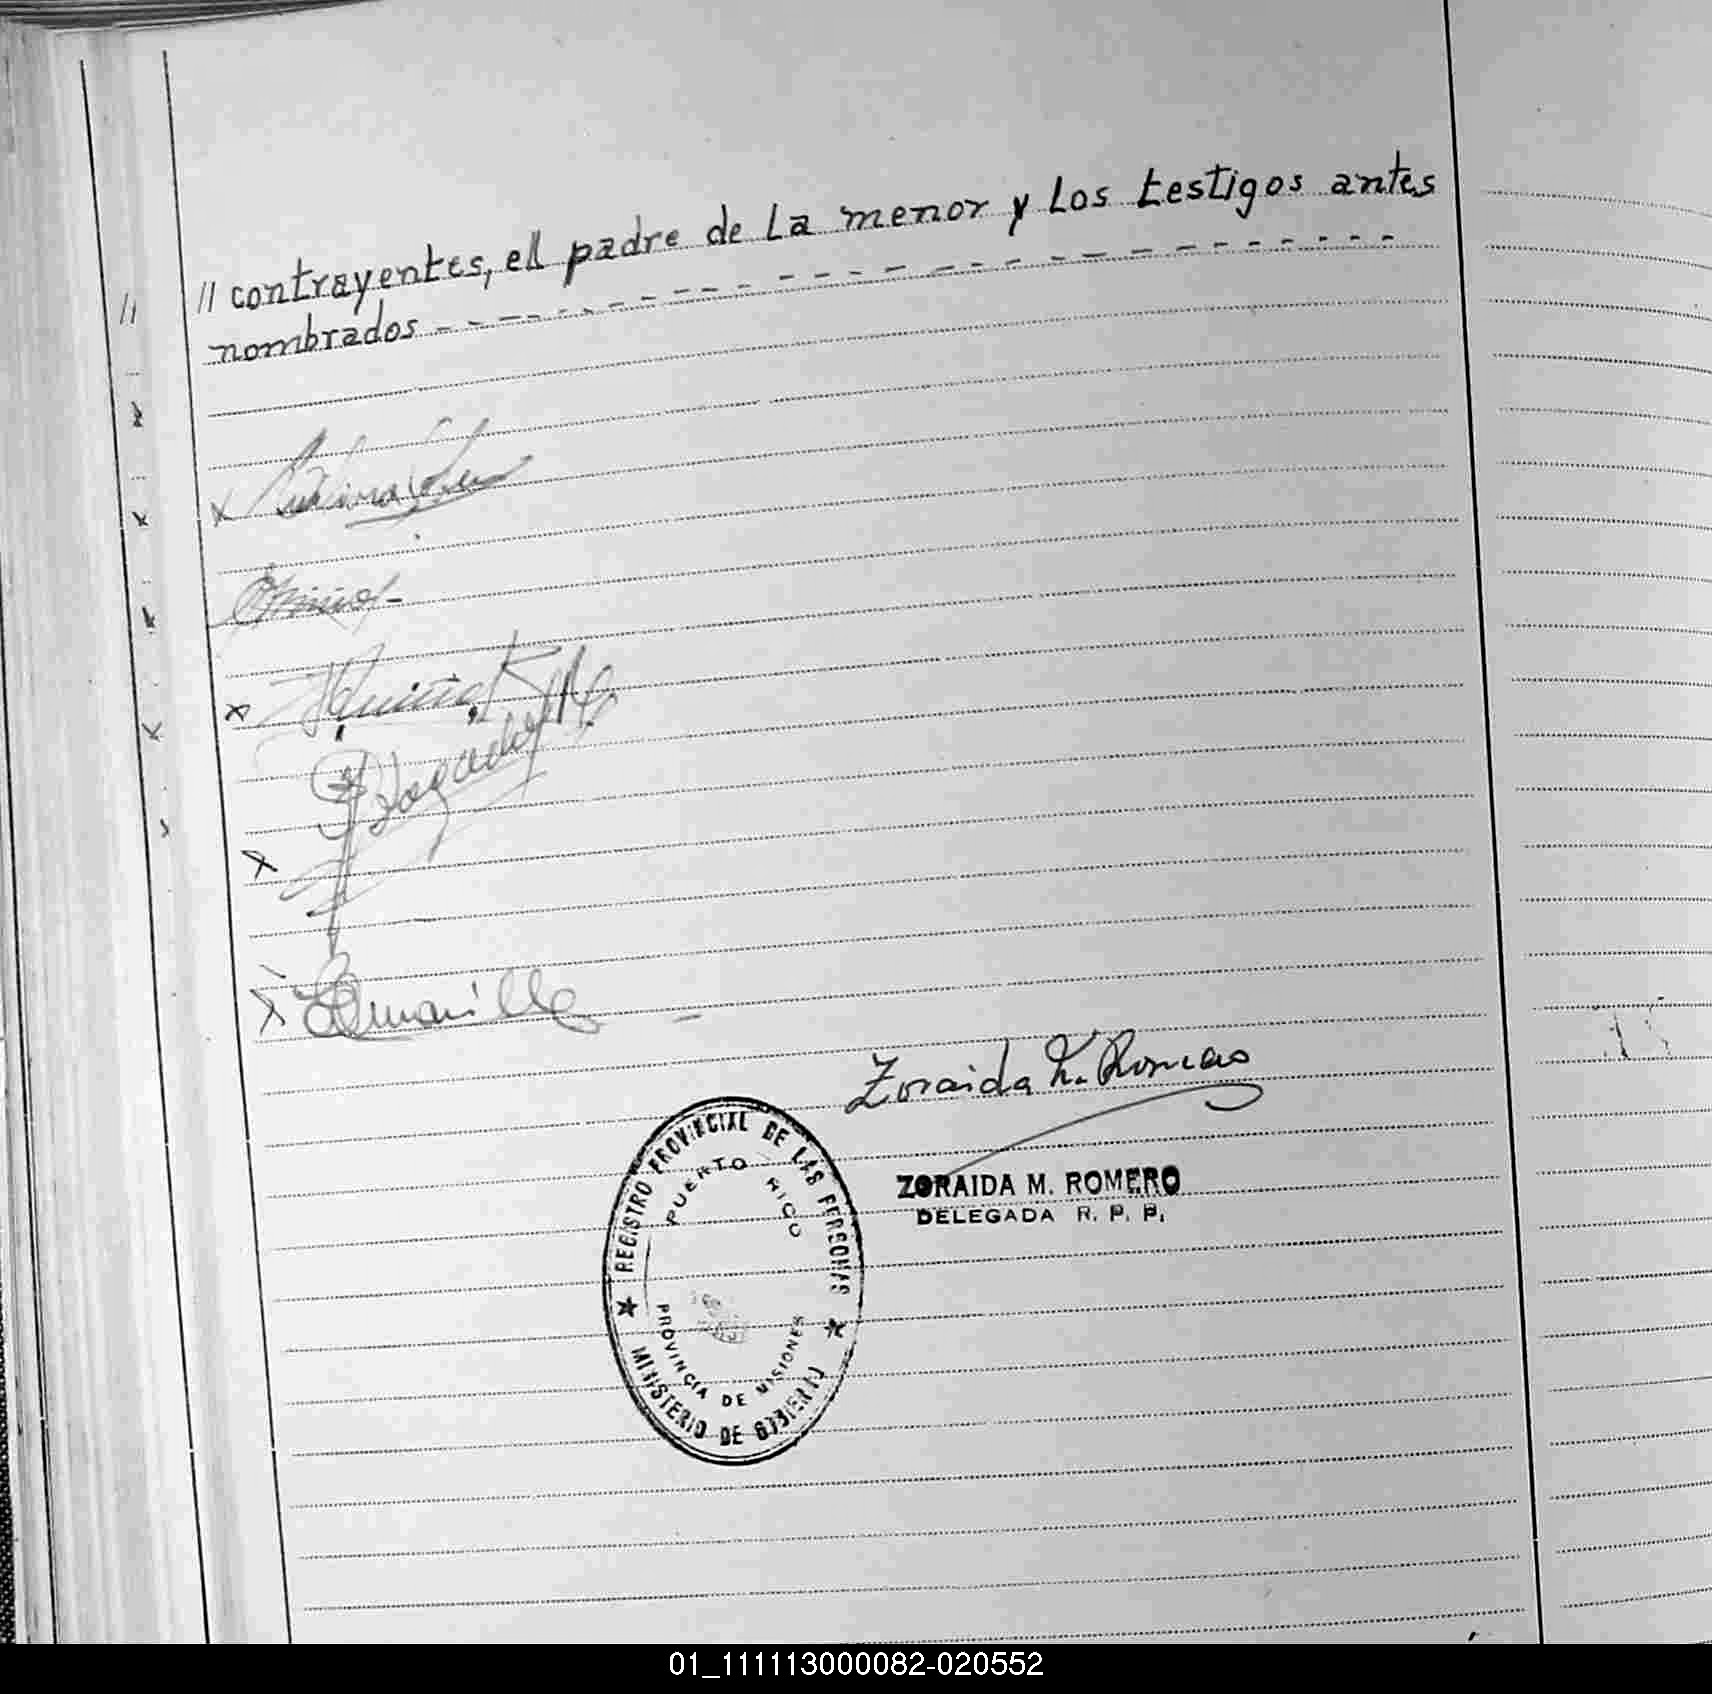 // contrayentes, el padre de La menor y Los testigos antes
nombrados
Zoraida M. Romero
ZORAIDA M. ROMERO
DELEGADA R. P. P.
REGISTRO PROVINCIAL DE LAS PERSONAS
PUERTO RICO
PROVINCIA DE MISIONES
MINISTERIO DE GOBIERNO
01_111113000082-020552